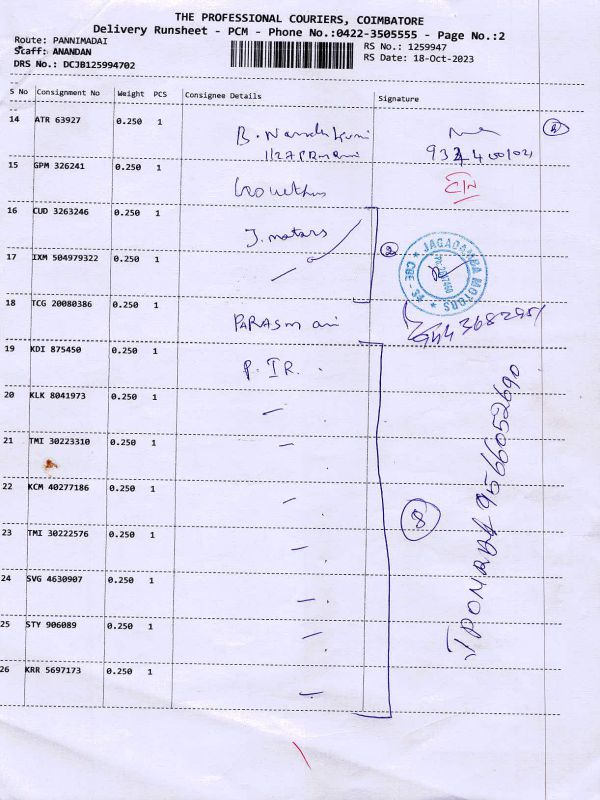 THE PROFESSIONAL COURIERS, COIMBATORE
Delivery Runsheet - PCM - Phone No.:0422-3505555 - Page No.:2
Route: PANNIMADAI
RS No.: 1259947
Scaff: ANANDAN
RS Date: 18-Oct-2023
DRS No.: DCJB125994702
S No Consignment No Weight PCS Consignee Details Signature
14 ATR 63927 0.250 1 4
15 GPM 326241 0.250 1
16 CUD 3263246 0.250 1 J. motors
17 IXM 504979322 0.250 1 2 JAGADAMBA MOTORS
18 TCG 20080386 0.250 1 PARASmani
19 KDI 875450 0.250 1 P. IR.
20 KLK 8041973 0.250 1
21 TMI 30223310 0.250 1
22 KCM 40277186 0.250 1 8
23 TMI 30222576 0.250 1
24 SVG 4630907 0.250 1
25 STY 906089 0.250 1
26 KRR 5697173 0.250 1
9566052690